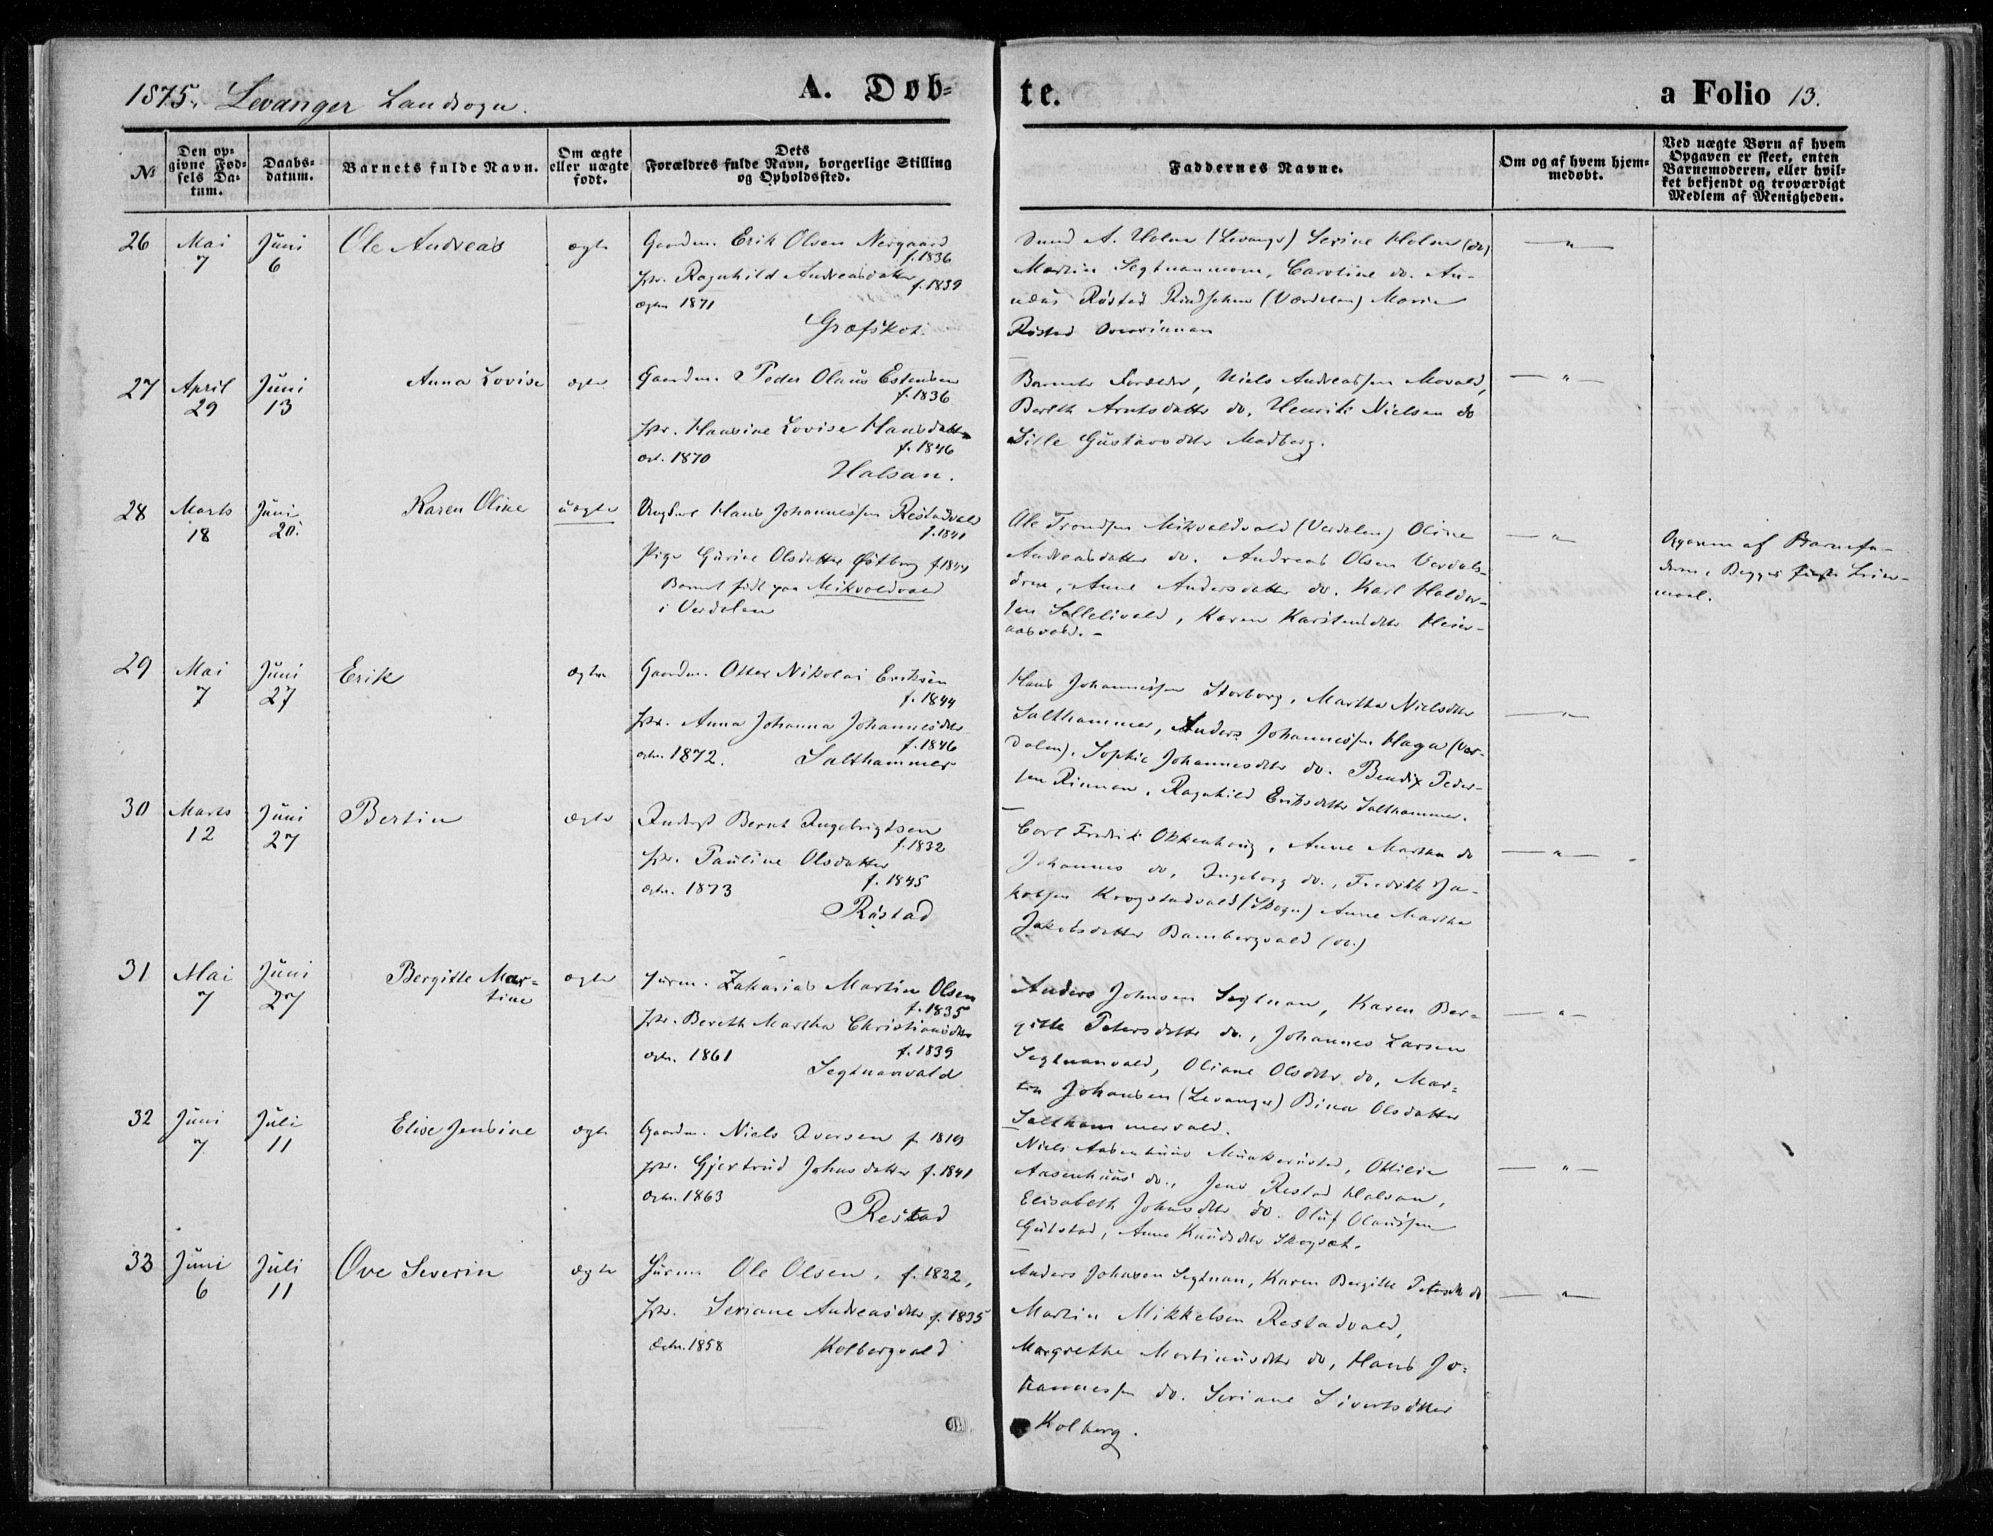 1875. Levanger Landsogn.
A. Døb-
te.
a Folio 13.
№
Den op-
givne Fød-
sels Da-
tum.
Daabs-
datum.
Barnets fulde Navn.
Om ægte
eller uægte
født.
Dets
Forældres fulde Navn, borgerlige Stilling
og Opholdssted.
Faddernes Navne.
Om og af hvem hjem-
medøbt.
Ved uægte Børn af hvem
Opgaven er skeet, enten
Barnemoderen, eller hvil-
ket bekjendt og troværdigt
Medlem af Menigheden.
26
Mai
7
Juni
6
Ole Andreas
ægte
Gaardm. Erik Olsen Nergaard
f. 1836
Ragnhild Andreasdatter
f. 1839
1871
A. Holm (Levanger) Serine Holm (do)
Martin Caroline do. An-
Røstad (Værdalen) Marie
Røstad
27
April
29
Juni
13
Anna Lovise
ægte
Gaardm. Peder Olaus Estensen
f. 1836
Hansine Lovise Hansdatter
f. 1846
1870
Halsan.
Barnets Forældre, Niels Andreassen Movald,
Bereth Arntsdatter do, Henrik Nielsen do
Gustavsdtr Madberg.
28
Marts
18
Juni
20.
Karen Oline
uægte
Ungkarl Hans Johannessen Restadvald
f. 1841
Pige Gurine Olsdatter Østborg f. 1844
Barnet født paa Mikvoldvald
i Verdalen
Ole Trondsen Mikvoldvald (Verdalen) Oline
Andreasdatter do. Andreas Olsen Verdals-
øren, Anne Andersdatter do. Karl Haldor-
sen Karen Karstensdtr Heir-
aasvald.
Opgaven af Barnefa-
deren, Begges Leier-
maal.
29
Mai
7
Juni
27
Erik
ægte
Gaardm. Otter Nikolai Eriksen
f. 1844
Anna Johanna Johannesdtr
f. 1846
1872.
Salthammer
Hans Johannessen Storborg, Martha Nielsdtr
Salthammer, Anders Johannessen Haga (Ver-
dalen), Sophie Johannesdtr do. Bendix Peder-
sen Rinnan, Ragnhild Eriksdatter Salthammer.
30
Marts
12
Juni
27
Bertin
ægte
Inderst Bernt Ingebrigtsen
f. 1832
Pauline Olsdatter
f. 1845
1873
Røstad
Carl Fredrik Okkenhaug, Anne Martha do
Johannes do, Ingeborg do, Fredrik Ja-
kobsen Krogstadvald (Skogn) Anne Martha
Jakobsdatter Bambergvald (do.)
31
Mai
7
Juni
27
Bergitte Mar-
tine
ægte
Zakarias Martin Olsen
f. 1835
Bereth Martha Christiansdtr
f. 1839
1861
Segtnanvald
Anders Johnsen Segtnan, Karen Ber-
gitte Petersdatter do, Johannes Larsen
Segtnanvald, Oliane Olsdtr do, Mar-
tin Johansen (Levanger) Bina Olsdatter
Salthammervald.
32
Juni
7
Juli
11
Elise Jensine
ægte
Gaardm. Niels Iversen f. 1819
Gjertrud Johnsdatter f. 1841
1863
Restad
Niels Aasenhuus Munkerøstad, Ottilie
Aasenhuus do, Jens Restad Halsan,
Elisabeth Johnsdtr do. Oluf Olaussen
Gulstad, Anne Knudsdtr
33
Juni
6
Juli
11
Ove Severin
ægte
Ole Olsen, f. 1822,
Seriane Andreasdtr f. 1835
1858
Kolbergvald
Anders Johnsen Segtnan, Karen Bergitte Petersdtr do
Martin Mikkelsen Restadvald,
Margrethe Martinusdtr do, Hans Jo-
hannessen do. Seriane Sivertsdtter
Kolberg.